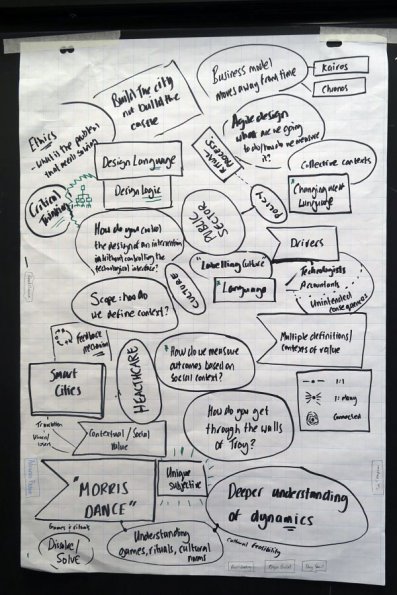 Business model
moves away from time
Kairos
Chronos
Build the city
not build the
castle
Ethics
- What is the problem
that needs solving
Agile design
what are we going
to do/how do we measure
it?
RITUAL
PROCESS:
Collective contexts
Design Language
Design Logic
Critical
Thinking
POLICY
Changing next
Language
PUBLIC
SECTOR
How do you control
the design of an intervention
without controlling the
technological interface?
Drivers
"Labelling Culture"
Language
CULTURE
Technologists
Accountants
Unintended consequences
Scope: how do
we define context?
Feedback
mechanism
Multiple definitions/
contexts of value
HEALTHCARE
How do we measure
outcomes based on
social context?
Smart
Cities
1:1
1:Many
Connected
Translation
Contextual / Social
Value
How do you get
through the walls
of Troy?
"MORRIS
DANCE"
Unique
Subjective
Deeper understanding
of dynamics
Games + rituals
Understanding
games, rituals, cultural
norms
Cultural flexibility
Dissolve/
SOLVE